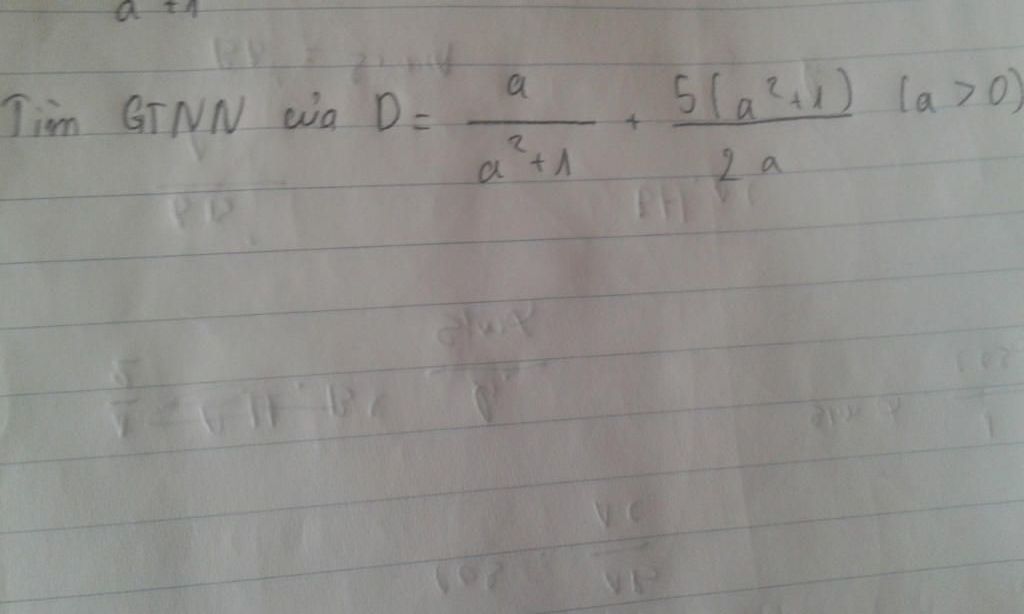 a + 1
Tìm GTNN của D = a / (a² + 1) + 5(a² + 1) / 2a (a > 0)